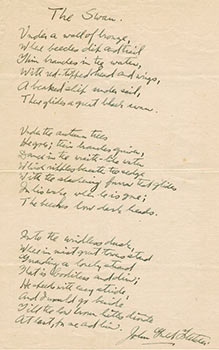 The Swan.
Under a wall of bronze,
Where beeches dip and trail
Thin branches in the water,
With red-tipped head and wings,
A beaked ship under sail,
There glides a great black swan.
Under the autumn trees
He goes; the branches quiver,
Dance in the
Which ripples beneath the sedge
With the slackening furrow that glides
In his wake when he is gone;
The beeches bow dark heads.
Into the windless dusk,
Where in mist great towers stand
Guarding a lonely strand
That is bodiless and dim;
He speeds with easy stride;
And I would go beside
Till the low brown hills divide
At last, for me and him.
John Gould Fletcher